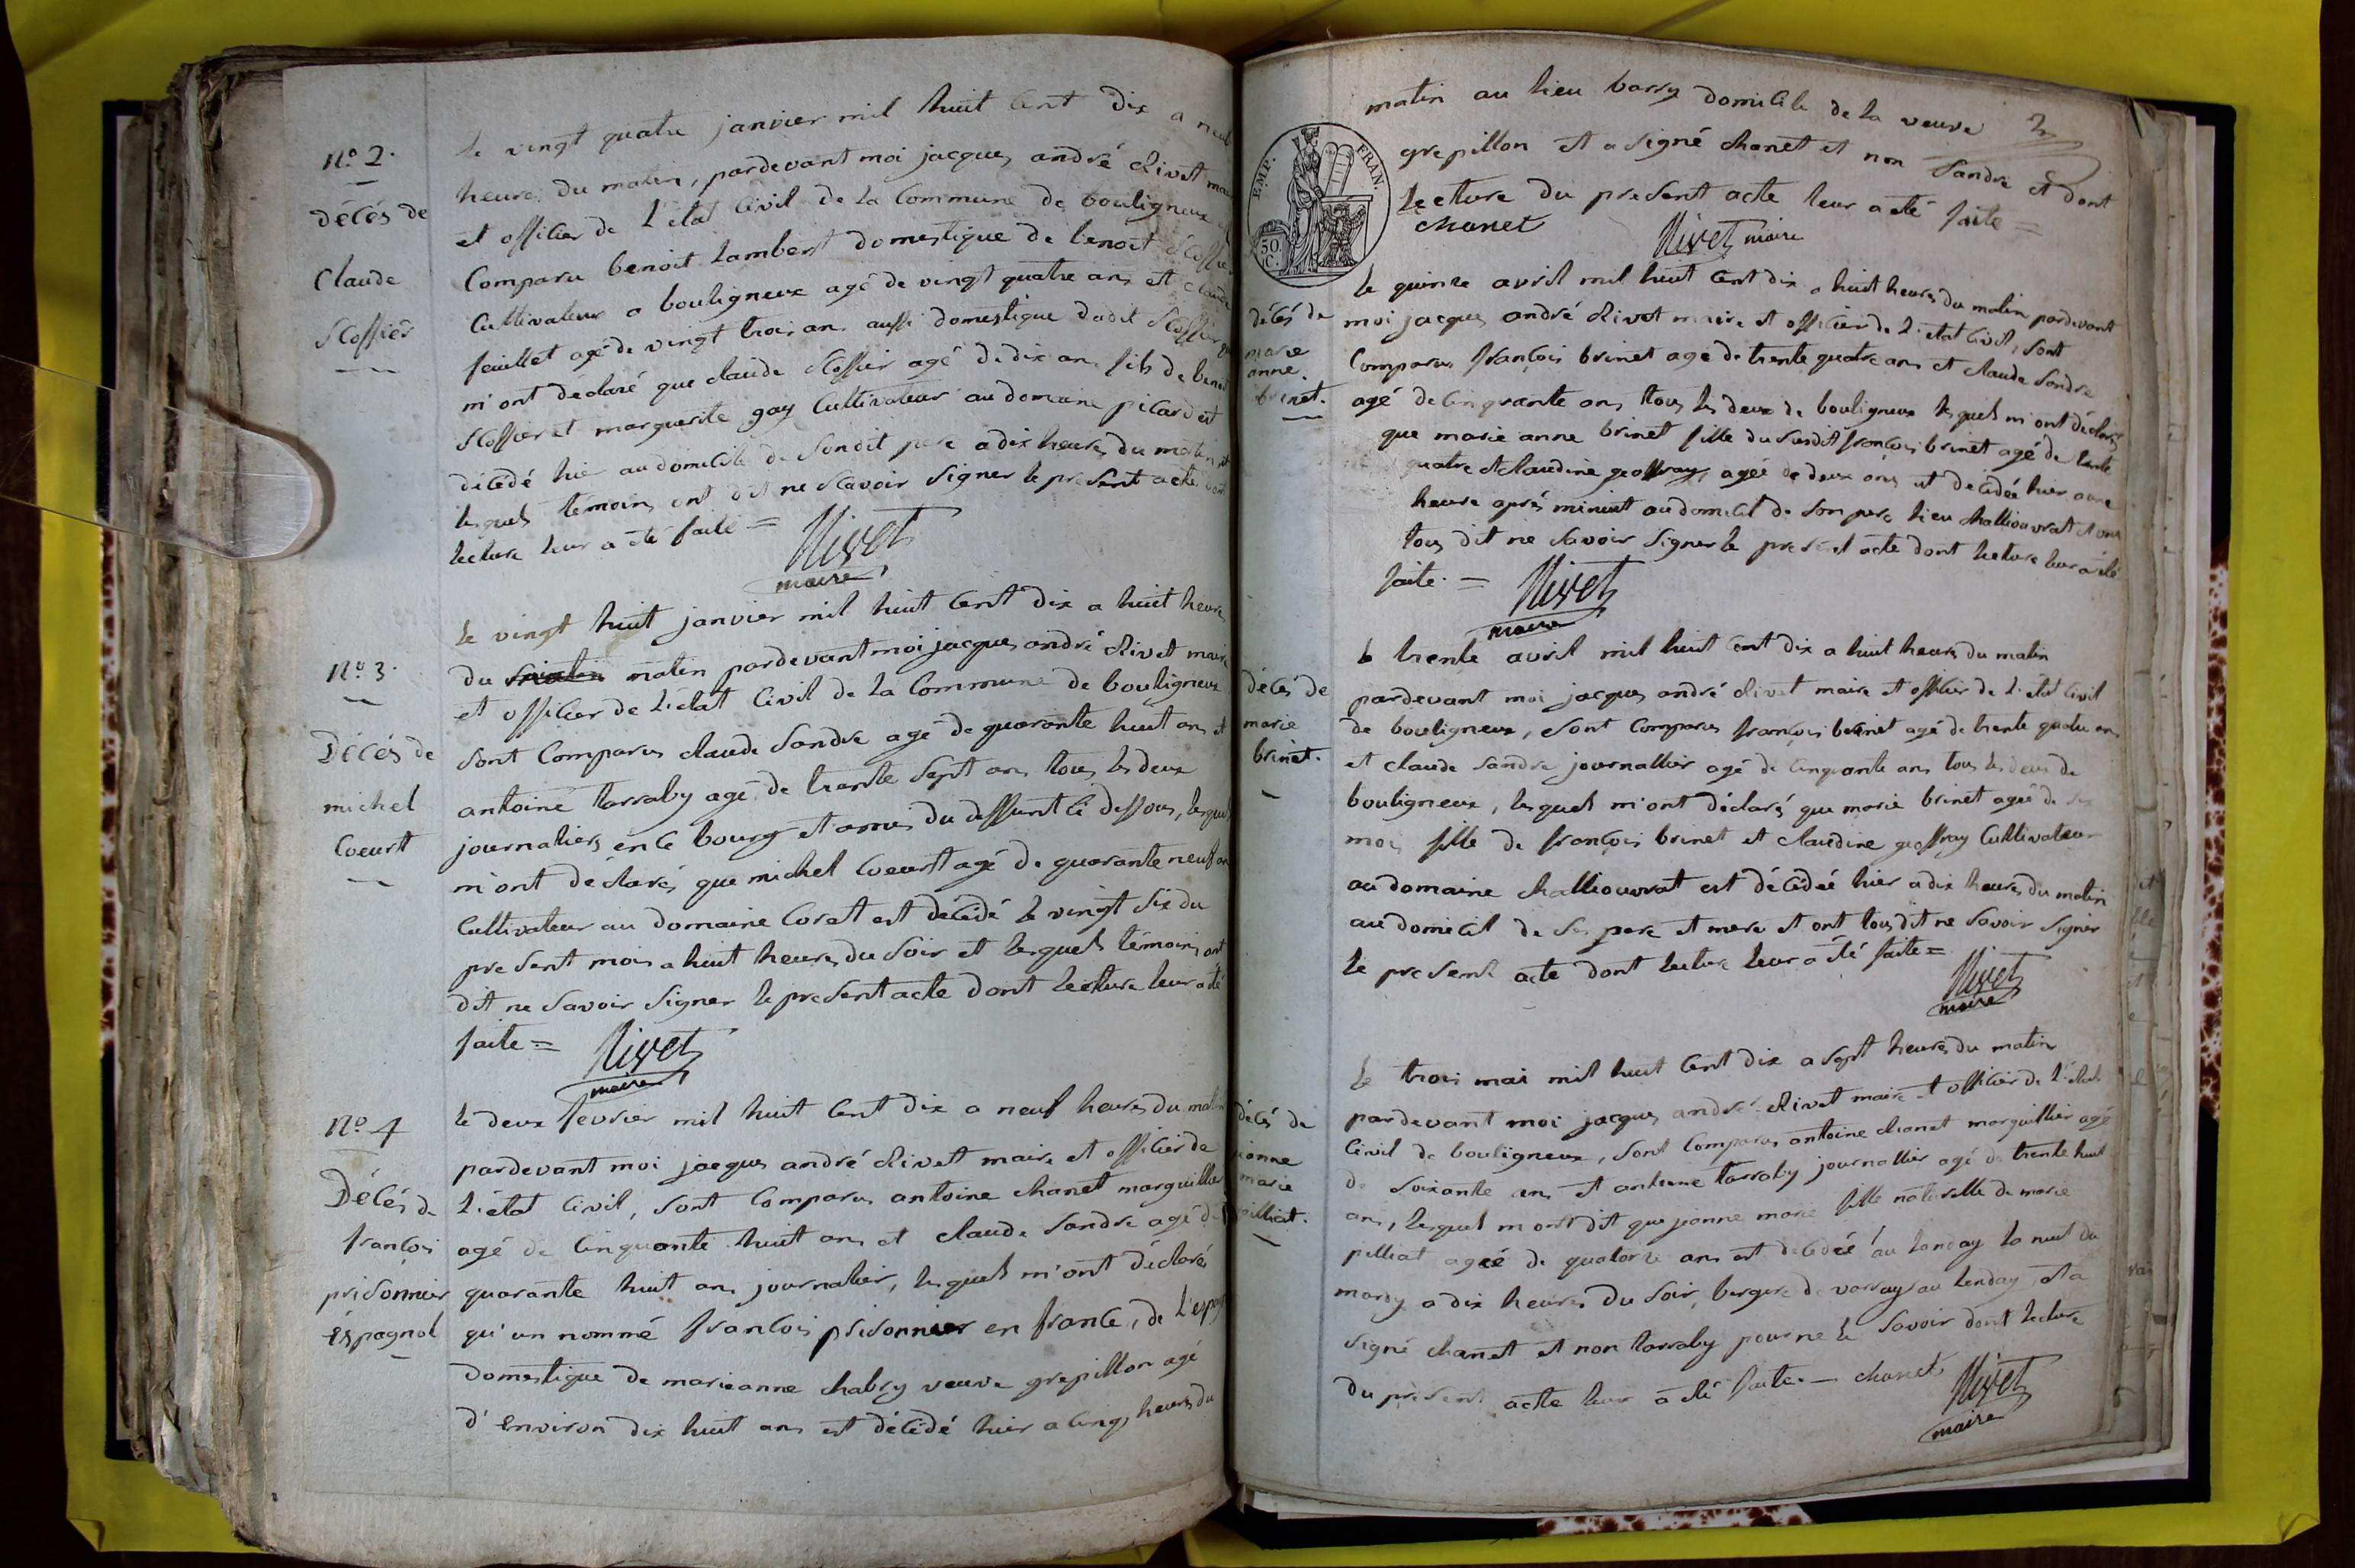 N.º 2.
décés de
Claude
Scoffier
le vingt quatre janvier mil huit cent dix a neuf
heures du matin, pardevant moi jacques andré Rivet maire
et officier de l'état civil de la commune de bouligneux
comparu benoit Lambert domestique de benoit Scoffier
cultivateur a bouligneux agé de vingt quatre ans et claude
feuillet agé de vingt trois ans aussi domestique dudit Scoffier
m'ont declaré que claude Scoffier agé de dix ans fils de benoit
Scoffier et marguerite gay cultivateur au domaine picard est
décédé hier au domicile de sondit pere a dix heures du matin et
lesquels témoins ont dit ne scavoir signer le present acte dont
lecture leur a été faite =
Rivet
maire
N.º 3.
Décés de
michel
Coeurt
le vingt huit janvier mil huit cent dix a huit heures
du matin pardevant moi jacques andré Rivet maire
et officier de l'état civil de la commune de bouligneux
sont comparus claude Sandre agé de quarante huit ans et
antoine tarraby agé de trente sept ans tous les deux
journaliers en ce bourg et amis du deffunt ci dessous, lesquels
m'ont déclarés que michel Coeurt agé de quarante neuf ans
cultivateur au domaine Coret est décédé le vingt six du
present mois a huit heures du soir et lesquels témoins ont
dit ne savoir signer le present acte dont lecture leur a été
faite =
Rivet
maire
N.º 4
Décés de
francois
prisonnier
éspagnol
le deux fevrier mil huit cent dix a neuf heures du matin
pardevant moi jacques andré Rivet maire et officier de
l'état civil, sont comparus antoine chanet marguillier
agé de cinquante huit ans et claude Sandre agé de
quarante huit ans journalier, lesquels m'ont déclarés
qu'un nommé francois prisonnier en france, de l'espagne
domestique de marieanne chabry veuve grepillon agé
d'environ dix huit ans est décédé hier a cinq heures du
matin au lieu barry domicile de la veuve
grepillon et a signé chanet et non Sandre et dont
Lecture du present acte leur a été faite =
chanet
Rivet maire
EMP. FRAN.
50.
C.
décés de
marie
anne
brinet.
le quinze avril mil huit cent dix a huit heures du matin pardevant
moi jacques andré Rivet maire et officier de l'état civil, sont
comparus françois brinet agé de trente quatre ans et claude Sandre
agé de cinquante ans tous les deux de bouligneux lesquels m'ont déclarés
que marie anne brinet fille du susdit françois brinet agé de trente
quatre et claudine geoffray, agée de deux ans est décédée hier a une
heure aprés minuit au domicil de son pere lieu challiouvrat et ont
tous dit ne savoir signer le present acte dont lecture leur a été
faite. =
Rivet
maire
décés de
marie
brinet.
le trente avril mil huit cent dix a huit heures du matin
pardevant moi jacques andré Rivet maire et officier de l'état civil
de bouligneux, sont comparus françois brinet agé de trente quatre ans
et claude Sandre journallier agé de cinquante ans tous les deux de
bouligneux, lesquels m'ont déclarés que marie brinet agée de six
mois fille de françois brinet et claudine geoffray cultivateur
au domaine challiouvrat est décédée hier a dix heures du matin
au domicil de ses pere et mere et ont tous dit ne savoir signer
le present acte dont lecture leur a été faite =
Rivet
maire
décés de
jeanne
marie
pilliat.
le trois mai mil huit cent dix a sept heures du matin
pardevant moi jacques andré Rivet maire et officier de l'état
civil de bouligneux, sont comparus antoine chanet marguillier agé
de soixante ans et antoine tarraby journallier agé de trente huit
ans, lesquels m'ont dit que jeanne marie fille naturelle de marie
pilliat agée de quatorze ans est décédée au landay la nuit du
mardy a dix heures du soir, bergere de varray au landay, et a
signé chanet et non tarraby pour ne le savoir dont lecture
du present acte leur a été faite. — chanet
Rivet
maire